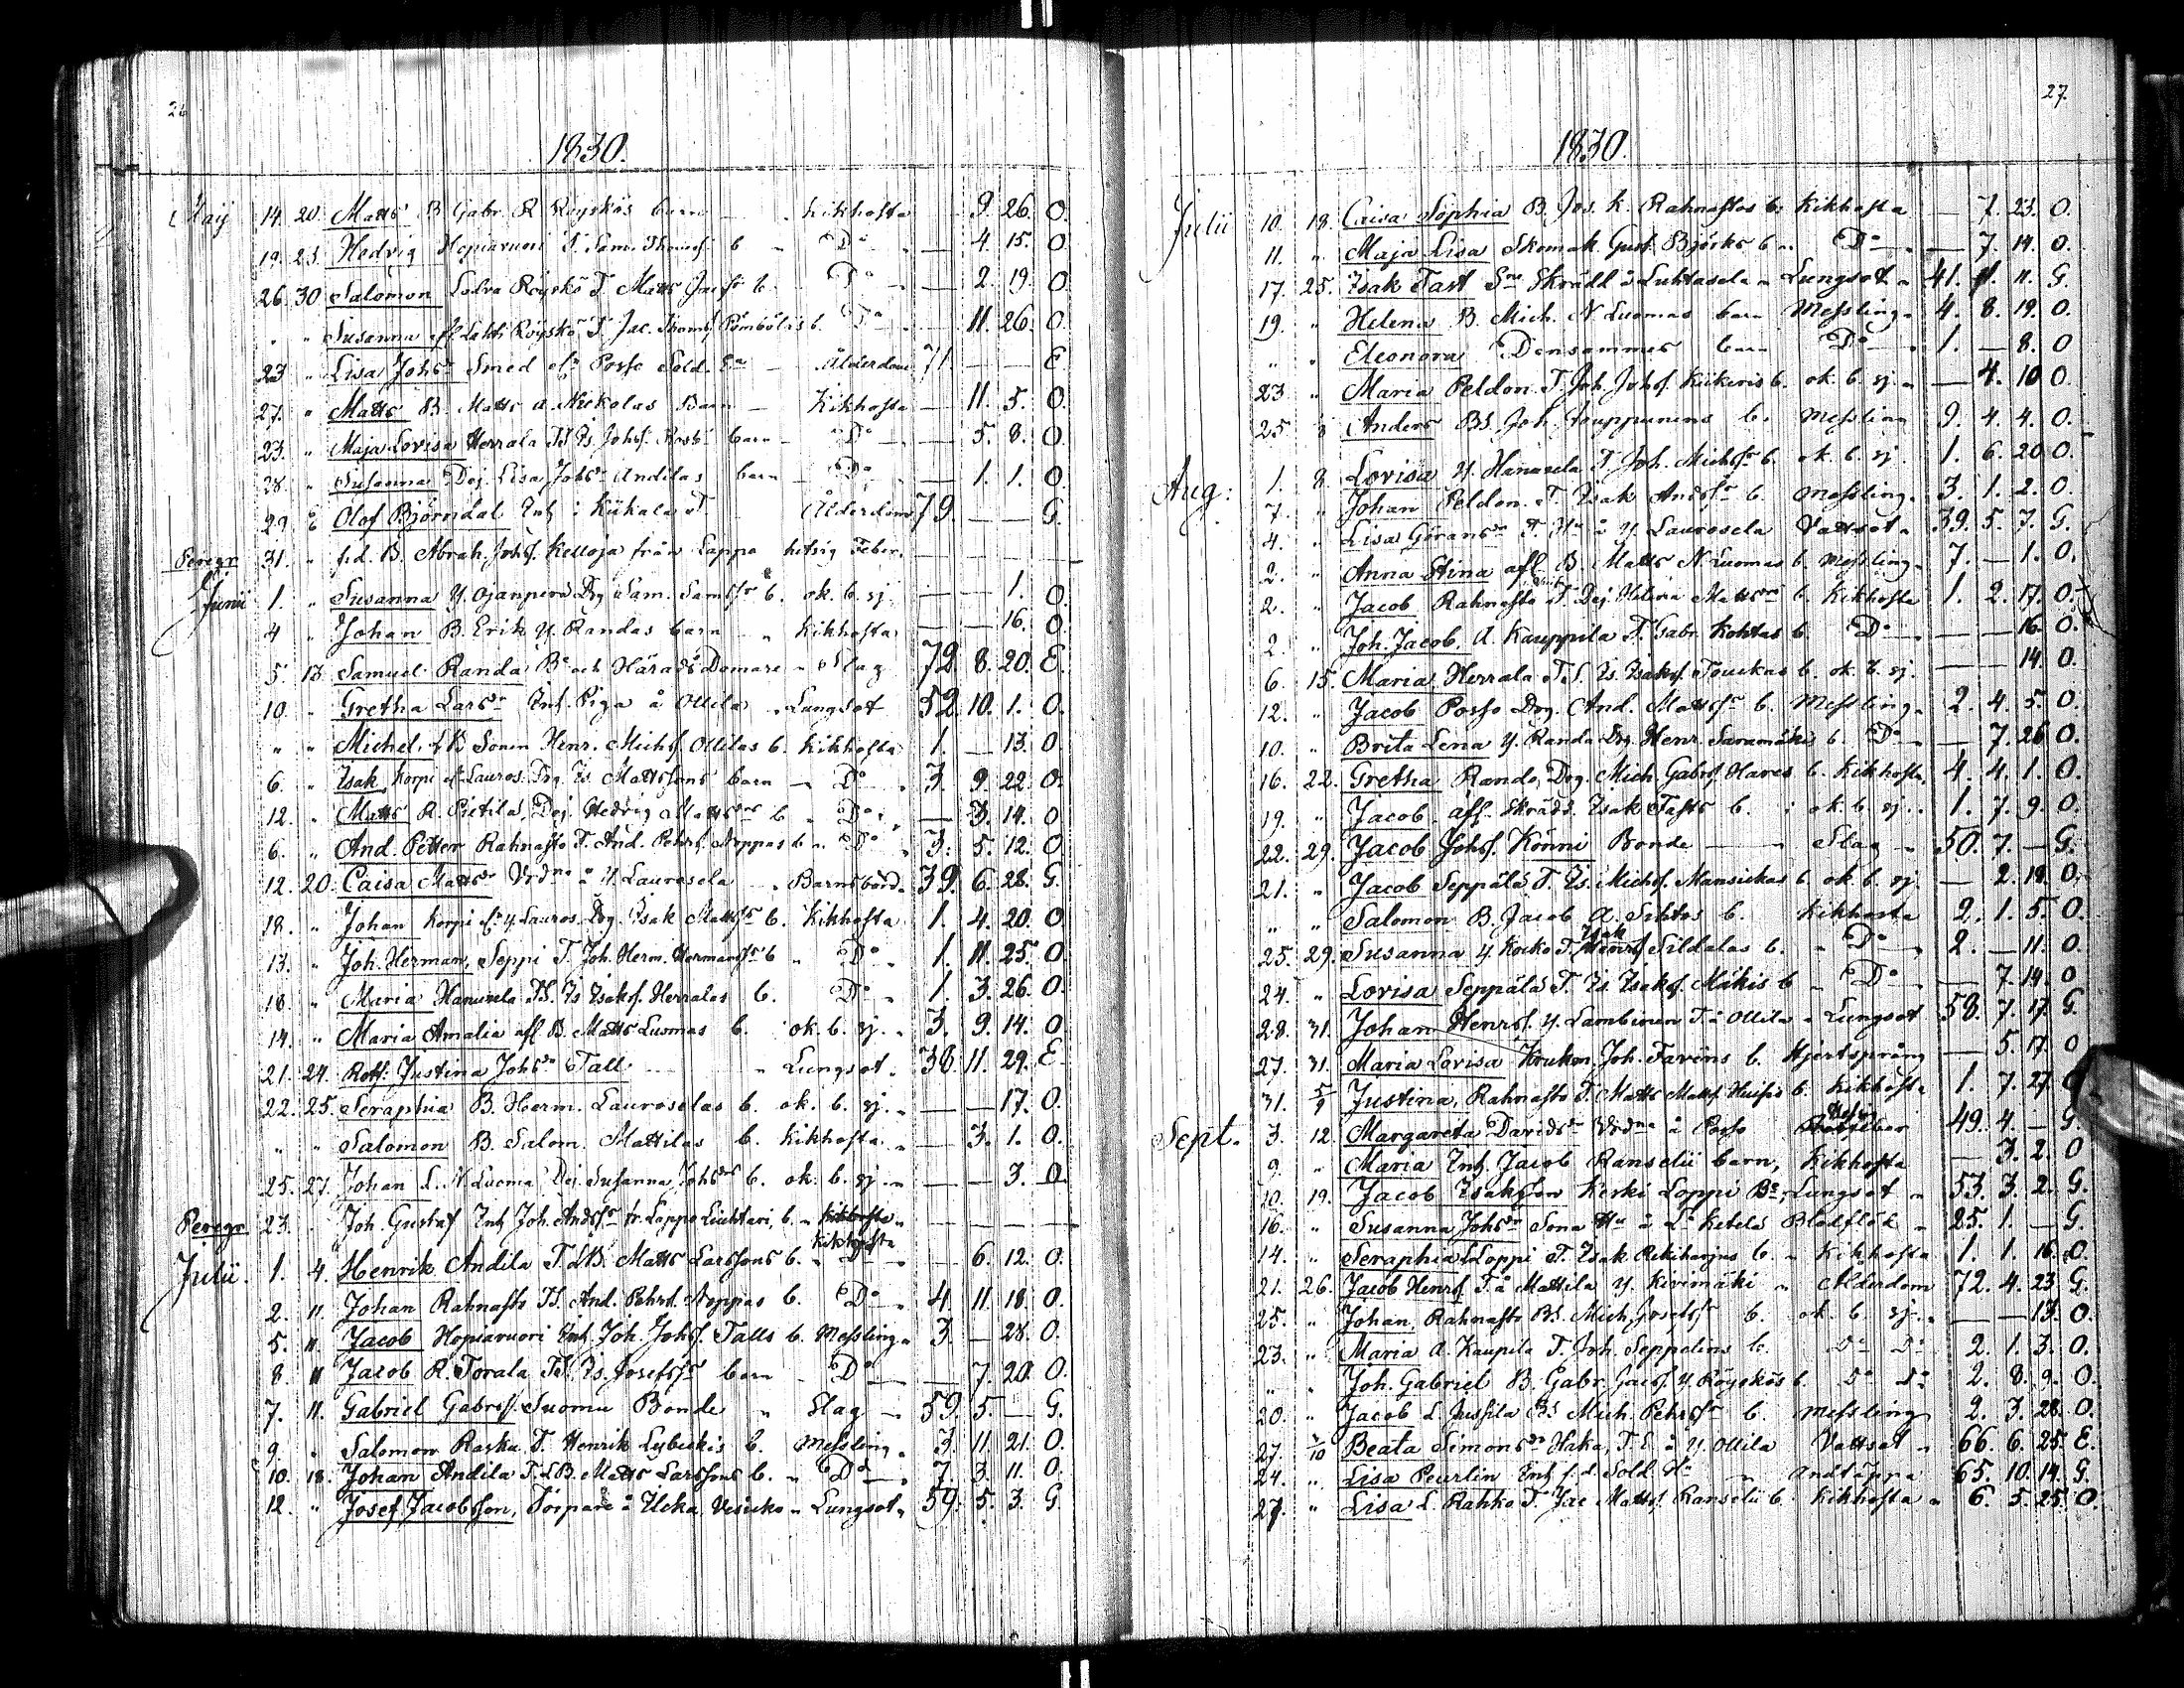 26
1830.
Maij 14. 20. Matts B. Gabr. R. Röyskös barn Kikhosta 9. 26. O.
19. 23. Hedvig Hopiavuori T. Sam. Thomæs. b. Do 4. 15. O.
26. 30 Salomon Ledva Röyskö T. Matts Jacs. b. Do 2. 19. O.
" " Susanna Röyskö T. Jac. b. Do 11. 26. O.
23 " Lisa Johsdr Smed Posso Sold. Ea Ålderdom 71. — — E.
27. " Matts B. Matts a. Nickolas Barn Kikhosta — 11. 5. O.
23. " Maja Lovisa Herrala Is. Johss. barn Do — 5. 8. O.
28. " Susanna Dej. Lisa Johsdrs Andilas barn Do — 1. 1. O.
29. Olof Björndal Inh. i Kükala T. Ålderdom 79. — — G.
Peregr 31. " f.d. B. Abrah. Johss. Kelloja från Lappo hetsig Feber. — — —
Junii 1. " Susanna Y. Ojanperä Drg Sam. Samss. b. ok. b. sj. — — 1. O.
4 " Johan B. Erik Y. Randas barn " Kikhosta — — 16. O.
5. 13. Samuel Randa Be och Härads Domare " Slag 72. 8. 20. E.
10. " Gretha Larsdr Inh. Piga å Ollila " Lungsot 52. 10. 1. O.
" " Michel, LB Sonen Henr. Michs. Ollilas b. Kikhosta 1. — 13. O
6. " Isak Korpi Lauros. Drg. Is. Mattssons barn Do 3. 9. 22. O.
12. " Matts R. Pietilä, Dej. Hedvig Mattsdrs b. Do — 3. 14. O
6. " And. Petter Rahnasto T. And. Pehrs. Noppas b. Do 3. 5. 12. O
12. 20. Caisa Mattsdr å Y. Laurosela Barnsbörd 39. 6. 28. G.
18. " Johan Korpi Y. Lauros. Drg. Isak Mattss. b. Kikhosta 1. 4. 20. O
13. " Joh. Herman, Seppi T. Joh. Herm. Hermanss. b. Do 1. 11. 25. O
18. " Maria Hanuxela TS. Is. Isaks. Herralas b. Do 1. 3. 26. O.
14. " Maria Amalia afl. B. Matts Luomas b. ok. b. sj. 3. 9. 14. O
21. 24. Rotf: Justina Johsdr Tall " Lungsot. 38. 11. 29. E.
22. 25. Seraphia B. Herm. Lauroselas b. ok. b. sj. — — 17. O.
" " Salomon B. Salom. Mattilas b. Kikhosta — 3. 1. O.
25. 27. Johan L. N. Luoma, Dej. Susanna Johsdrs b. ok. b. sj. — — 3. O.
Peregr 23. Joh. Gustaf Inh Joh. Andss. fr. Lappo Liuhtari b. Kikhosta — — —
Kikhosta
Julii. 1. 4. Henrik Andila T. LB. Matts Larssons b. Do 6. 12. O.
2. 11. Johan Rahnasto TS. And. Pehrs. Noppas b. Do 4. 11. 18. O.
5. 11. Jacob Hopiavuori Inh. Joh. Johs. Talls b. Messling 3. — 28. O.
8. 11 Jacob R. Torala TS. Is. Josefss. barn Do — 7. 20. O.
7. 11. Gabriel Gabrs. Suomu Bonde " Slag 59. 5. — G.
9. " Salomon Raska T. Henrik Lybeckis b. Messling 3. 11 21. O
10. 18. Johan Andila T. LB. Matts Larssons b. Do 7. 3. 11. O.
12. " Josef Jacobsson, Torpare å Ucka, Vesicko Lungsot 59. 5. 3. G
27.
1830.
Julii 10. 18. Caisa Sophia B. Jos. K. Rahnastos b. Kikhosta — 7. 23. O.
11. " Maja Lisa Skomak. Gust. Björks b. Do — 7. 14. O.
17. 25. Isak Tast Skrädd. å Luhtasela Lungsot 41. 11. 11. G.
19. " Helena B. Mich. N. Luomas barn Messling 4. 8. 19. O.
" " Eleonora Densammes barn Do 1. — 8. O
23 " Maria Peldon. T. Joh. Johs. Kiikeris b. ok. b. sj. — 4. 10 O.
25. 8 Anders BS. Joh. Jouppunens b. Messling 9. 4. 4. O.
Aug: 1. 8. Lovisa Y. Hanuxela T. Joh. Michss. b. ok. b. sj. 1. 6. 20 O.
7. " Johan Peldon. T. Isak Andss. b. Messling. 3. 1. 2. O.
4. " Lisa Göransdr T. Hu å Y. Laurosela Vattsot 39. 5. 7. G.
2. " Anna Stina afl. B. Matts N. Luomas b. Messling. 7. — 1. O.
2. " Jacob Rahnasto Dej. Helena Mattsdrs b. Kikhosta 1. 2. 17. O.
2. " Joh. Jacob. A. Kauppila T. Gabr. Kohtas b. Do — — 16. O.
6. 15. Maria Herrala TS. Is. Isaks. Touckas b. ok. b. sj. — — 14. O.
12. " Jacob Posso Drg. And. Mattss. b. Messling 2. 4. 5. O.
10. " Brita Lena Y. Randa Drg. Henr. Saramäkis b. Do — 7. 26 O.
16. 22. Gretha Rando, Drg. Mich. Gabrs. Hares b. Kikhosta 4. 4. 1. O.
19. " Jacob afl. Skrädd. Isak Tasts b. ok. b. sj. 1. 7. 9. O.
22. 29. Jacob Johs. Könni Bonde Slag 50. 7. — G.
21. " Jacob Seppälä T. Is. Michs. Mansickas b. ok. b. sj. — 2. 19. O.
" " Salomon B. Jacob A. Sihtos b. Kikhosta 2. 1. 5. O.
25. 29. Susanna Y. Kocko T. Isak Henrs. Sildalas b. Do 2. — 11. O.
24. " Lovisa Seppälä T. Is. Isaks. Mäkis b. Do — 7. 14. O
28. 31. Johan Henrs. Y. Lambinen T. å Ollila Lungsot 58. 7. 17. G.
27. 31. Maria Lovisa Joh. Tavéns b. Hjertsprång — 5. 17. O
31. 5/9 Justina, Rahnasto T. Matts Matts. Huisos b. Kikhosta 1. 7. 27.
Sept. 3. 12. Margareta Davidsdr å Posso 49. 4. — G.
9. " Maria Inh. Jacob Ranselii barn, Kikhosta — 3. 2. O
10. 19. Jacob Isaksson Keski Loppi Be, Lungsot 53. 3. 2. G.
16. " Susanna Johsdr Sona Hu å L: Ketola Blodflöd 25. 1. — G.
14. " Seraphia L. Loppi T. Isak Rekiharjus b. Kikhosta 1. 1. 16. O.
21. 26. Jacob Henrs. T. å Mattila Y. Kivimäki Ålderdom 72. 4. 23 G.
25. " Johan, Rahnasto BS. Mich. Josefss. b. ok. b. sj. — — 13. O.
23. " Maria A. Kaupila T. Joh. Seppelins b. Do Do 2. 1. 3. O.
" " Joh. Gabriel B. Gabr. Jacs. Y. Röyskös b. Do Do 2. 8. 9. O.
20. " Jacob L. Jussila BS Mich. Pehrss. b. Messling 2. 3. 28. O.
27. 3/10 Beata Simonsdr Haka, T. E. å Y. Ollila Vattsot 66. 6. 25. E.
24. " Lisa Peurlin Inh. f.d. Sold. Hu Andtäppa 65. 10. 14. G.
27. " Lisa L. Rahko T. Jac. Matts. Ranselii b. Kikhosta 6. 5. 25. O.